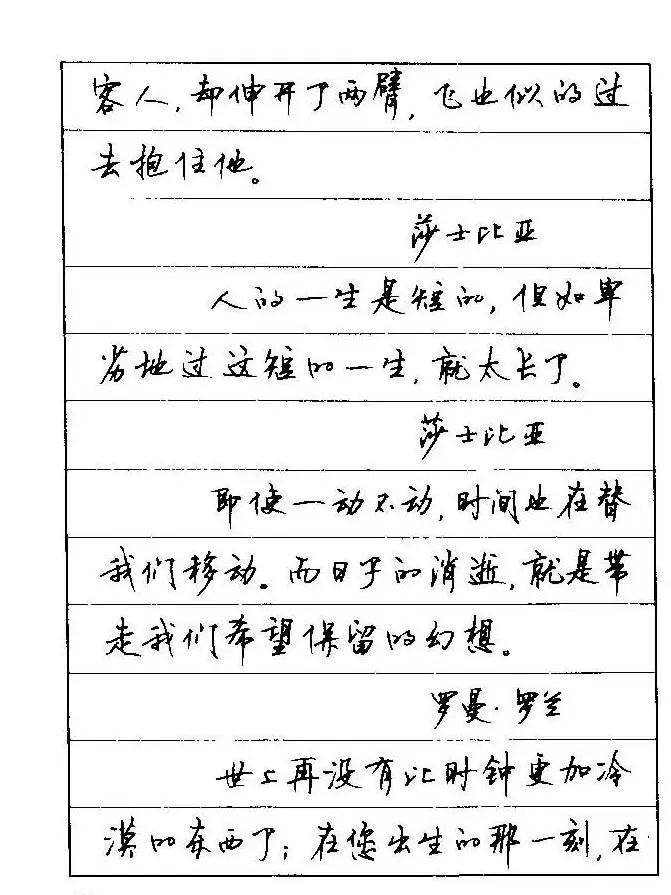 客人,却伸开了两臂,飞也似的过
去抱住他。
莎士比亚
人的一生是短的,但如卑
劣地过这短的一生,就太长了。
莎士比亚
即使一动不动,时间也在替
我们移动。而日子的消逝,就是带
走我们希望保留的幻想。
罗曼·罗兰
世上再没有比时钟更加冷
漠的东西了;在您出生的那一刻,在